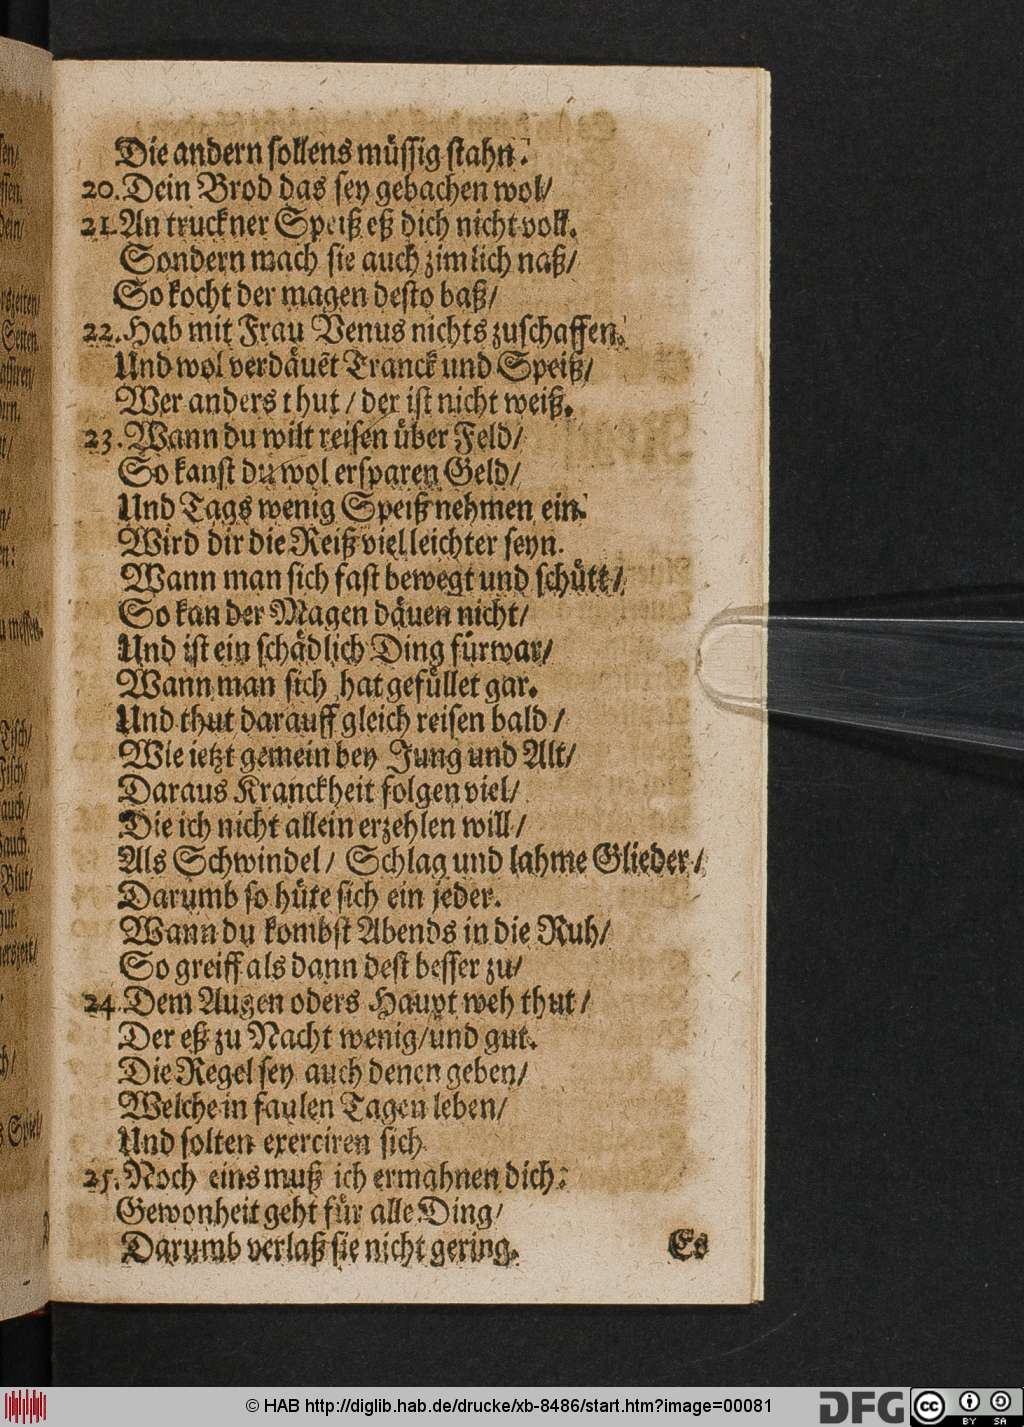 Die andern sollens müssig stahn.
20. Dein Brod das sey gebachen wol/
21. An truckner Speiß eß dich nicht voll.
Sondern mach sie auch zimlich naß/
So kocht der magen desto baß/
22. Hab mit Frau Venus nichts zuschaffen.
Und wol verdäuet Tranck und Speiß/
Wer anders thut / der ist nicht weiß.
23. Wann du wilt reisen über Feld/
So kanst du wol ersparen Geld/
Und Tags wenig Speiß nehmen ein.
Wird dir die Reiß viel leichter seyn.
Wann man sich fast bewegt und schütt/
So kan der Magen däuen nicht/
Und ist ein schädlich Ding fürwar/
Wann man sich hat gefüllet gar.
Und thut darauff gleich reisen bald /
Wie ietzt gemein bey Jung und Alt/
Daraus Kranckheit folgen viel/
Die ich nicht allein erzehlen will/
Als Schwindel / Schlag und lahme Glieder/
Darumb so hüte sich ein jeder.
Wann du kombst Abends in die Ruh/
So greiff als dann dest besser zu/
24. Dem Augen oders Haupt weh thut /
Der eß zu Nacht wenig/und gut.
Die Regel sey auch denen geben/
Welche in faulen Tagen leben/
Und solten exerciren sich
25. Noch eins muß ich ermahnen dich:
Gewonheit geht für alle Ding/
Darumb verlaß sie nicht gering.
Es
© HAB http://diglib.hab.de/drucke/xb-8486/start.htm?image=00081
DFG
CC BY SA